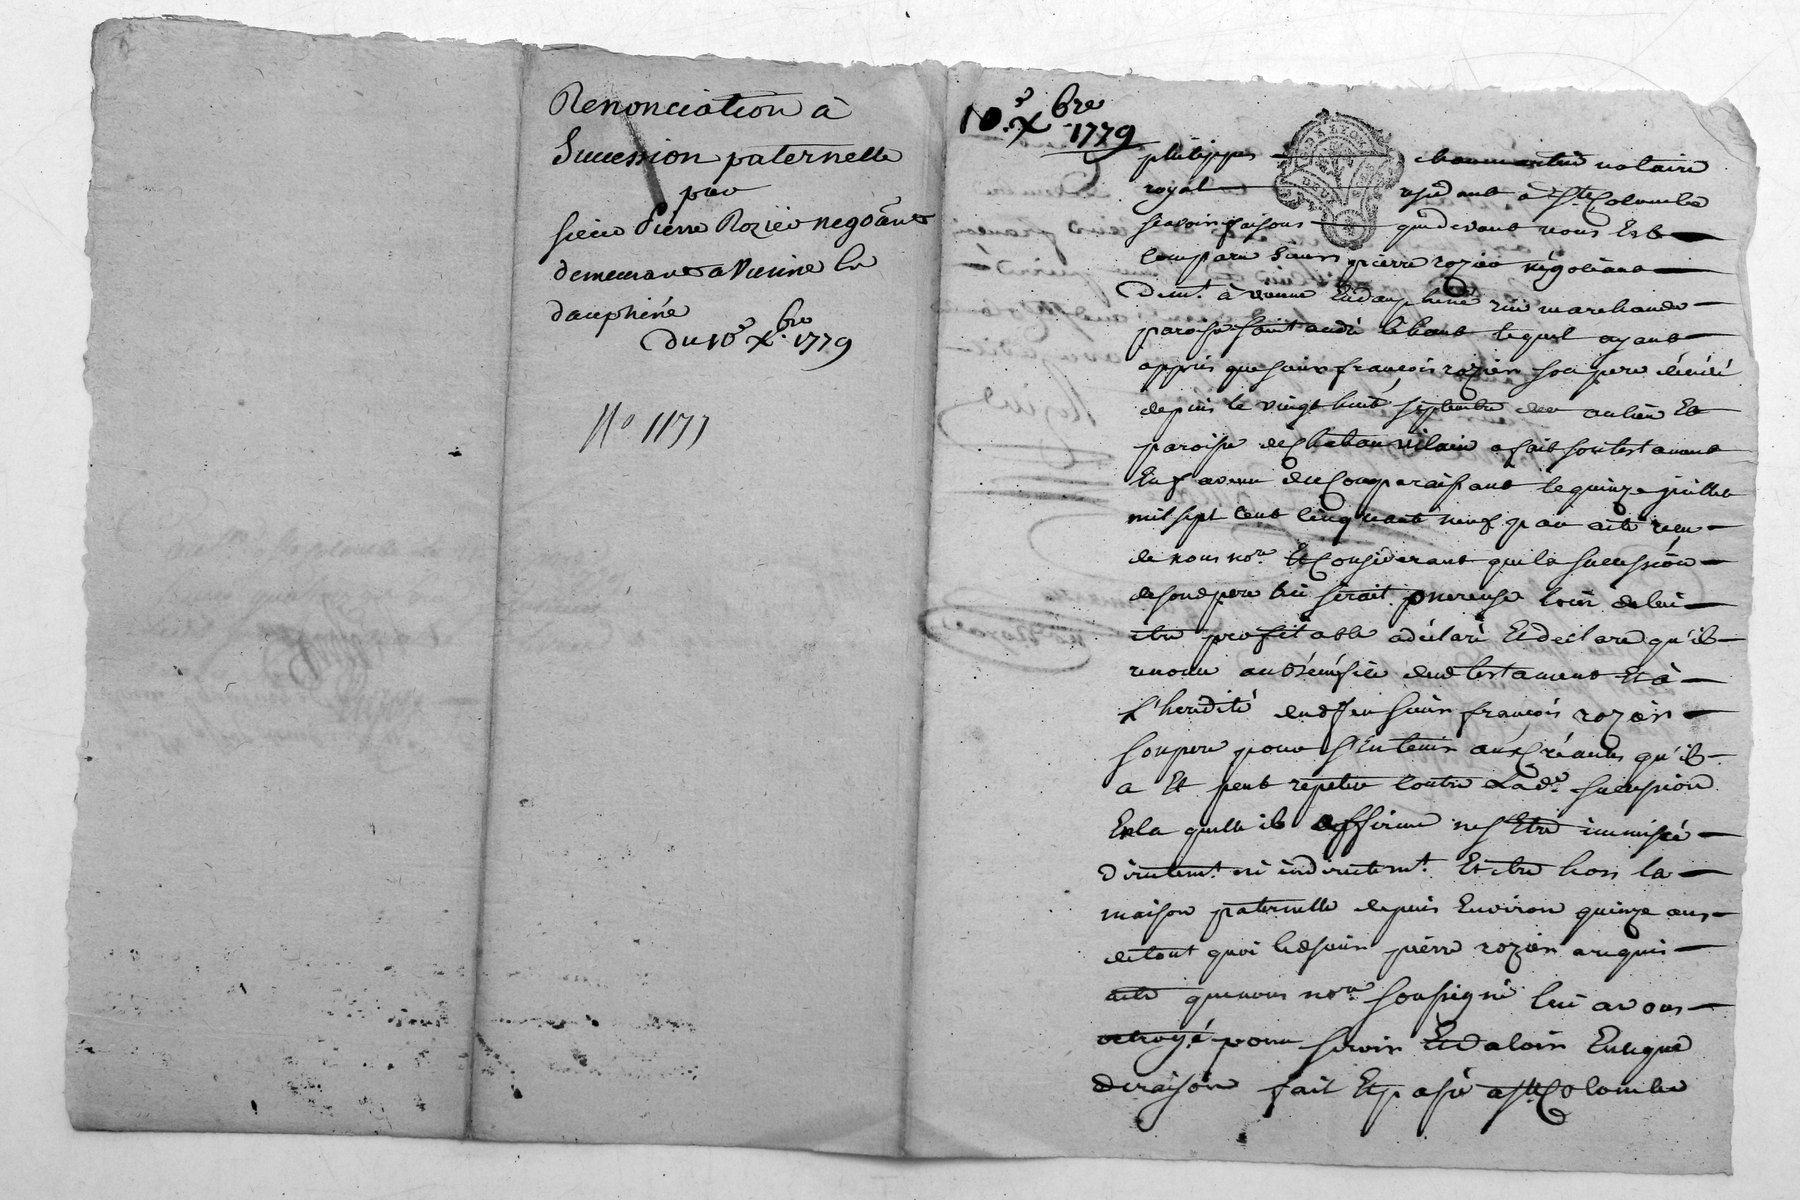 Renonciation à
Succession paternelle
par
sieur Pierre Rozier negotiant
demeurant a Vienne En
dauphiné
Du 10e Xbre 1779
No 1177
10e Xbre 1779
philippes chaumartin notaire
royal residant à Ste Colombe
sçavoir faisons que devant nous Est
Comparu Sieur pierre rozier négotiant
Demt. à vienne En dauphiné rüe marchande
paroisse saint andré le haut lequel ayant
appris que sieur françois rozier son pere décédé
depuis le vingt huit septembre der. au lieu Et
paroisse de Chateauvilain a fait son testament
En faveur du Comparaissant le quinze juillet
mil sept Cent Cinquante neuf par acte reçu
de nous nore. Et Considerant que la succession
de son pere lui serait onereuse loin de lui
etre profitable a déclaré Et declare qu'il
renonce au Bénéfice dud testament Et à
l'heredité dud feu sieur françois rozier
son pere pour s'En tenir aux Créances qu'il
a Et peut repeter Contre Lade. succession
En la quelle il affirme ne s'Etre immiscé
Directemt. ni indirectemt. Et etre hors la
maison paternelle depuis Environ quinze ans
de tout quoi led sieur pierre rozier a requis
acte que nous nore. soussigné lui avons
octroyé pour servir Et valoir Ce que
de raison fait Et passé a Ste Colombe